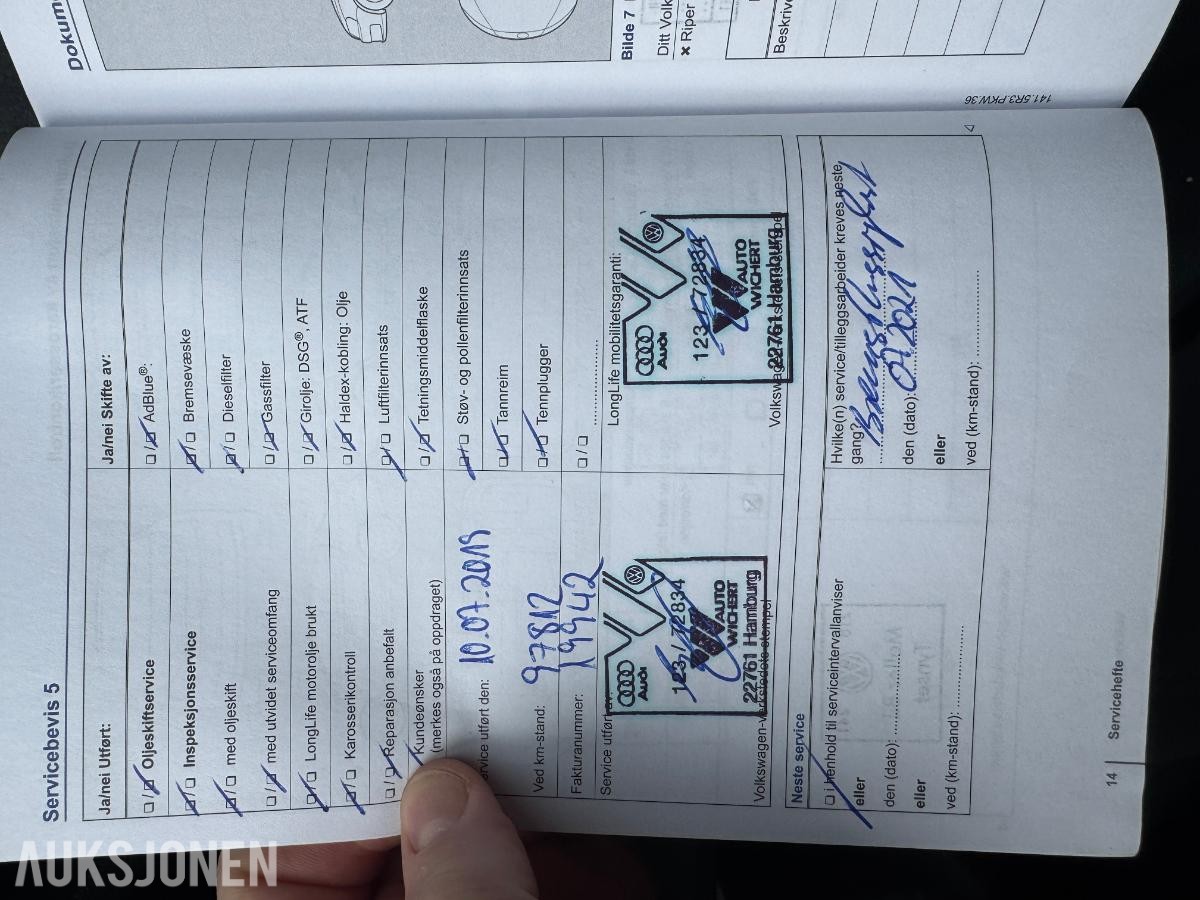 Dokum
Bilde 7
Ditt Volk
× Riper
Beskriv
141.5R3.PKW.36
Servicebevis 5
Ja/nei Utført:
☐/☐ Oljeskiftservice
☐/☐ Inspeksjonsservice
☐/☐ med oljeskift
☐/☐ med utvidet serviceomfang
☐/☐ LongLife motorolje brukt
☐/☐ Karosserikontroll
☐/☐ Reparasjon anbefalt
Kundeønsker
(merkes også på oppdraget)
ervice utført den: 10.07.2019
Ved km-stand: 97812
Fakturanummer: 19942
Service utført av:
Audi
123 / 72834
AUTO
WICHERT
22761 Hamburg
Volkswagen-verkstedets stempel
Ja/nei Skifte av:
☐/☐ AdBlue®:
☐/☐ Bremsevæske
☐/☐ Dieselfilter
☐/☐ Gassfilter
☐/☐ Girolje: DSG®, ATF
☐/☐ Haldex-kobling: Olje
☐/☐ Luftfilterinnsats
☐/☐ Tetningsmiddelflaske
☐/☐ Støv- og pollenfilterinnsats
☐/☐ Tannreim
☐/☐ Tennplugger
☐/☐ ....................
LongLife mobilitetsgaranti:
Audi
123 / 72834
AUTO
WICHERT
22761 Hamburg
Neste service
☐ i henhold til serviceintervallanviser
eller
den (dato): ....................
eller
ved (km-stand): ....................
Hvilke(n) service/tilleggsarbeider kreves neste
gang?
den (dato): 07.2021
eller
ved (km-stand): ....................
14
Servicehefte
AUKSJONEN